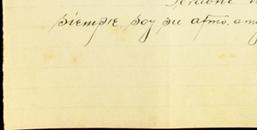 siempre soy su afmo. am